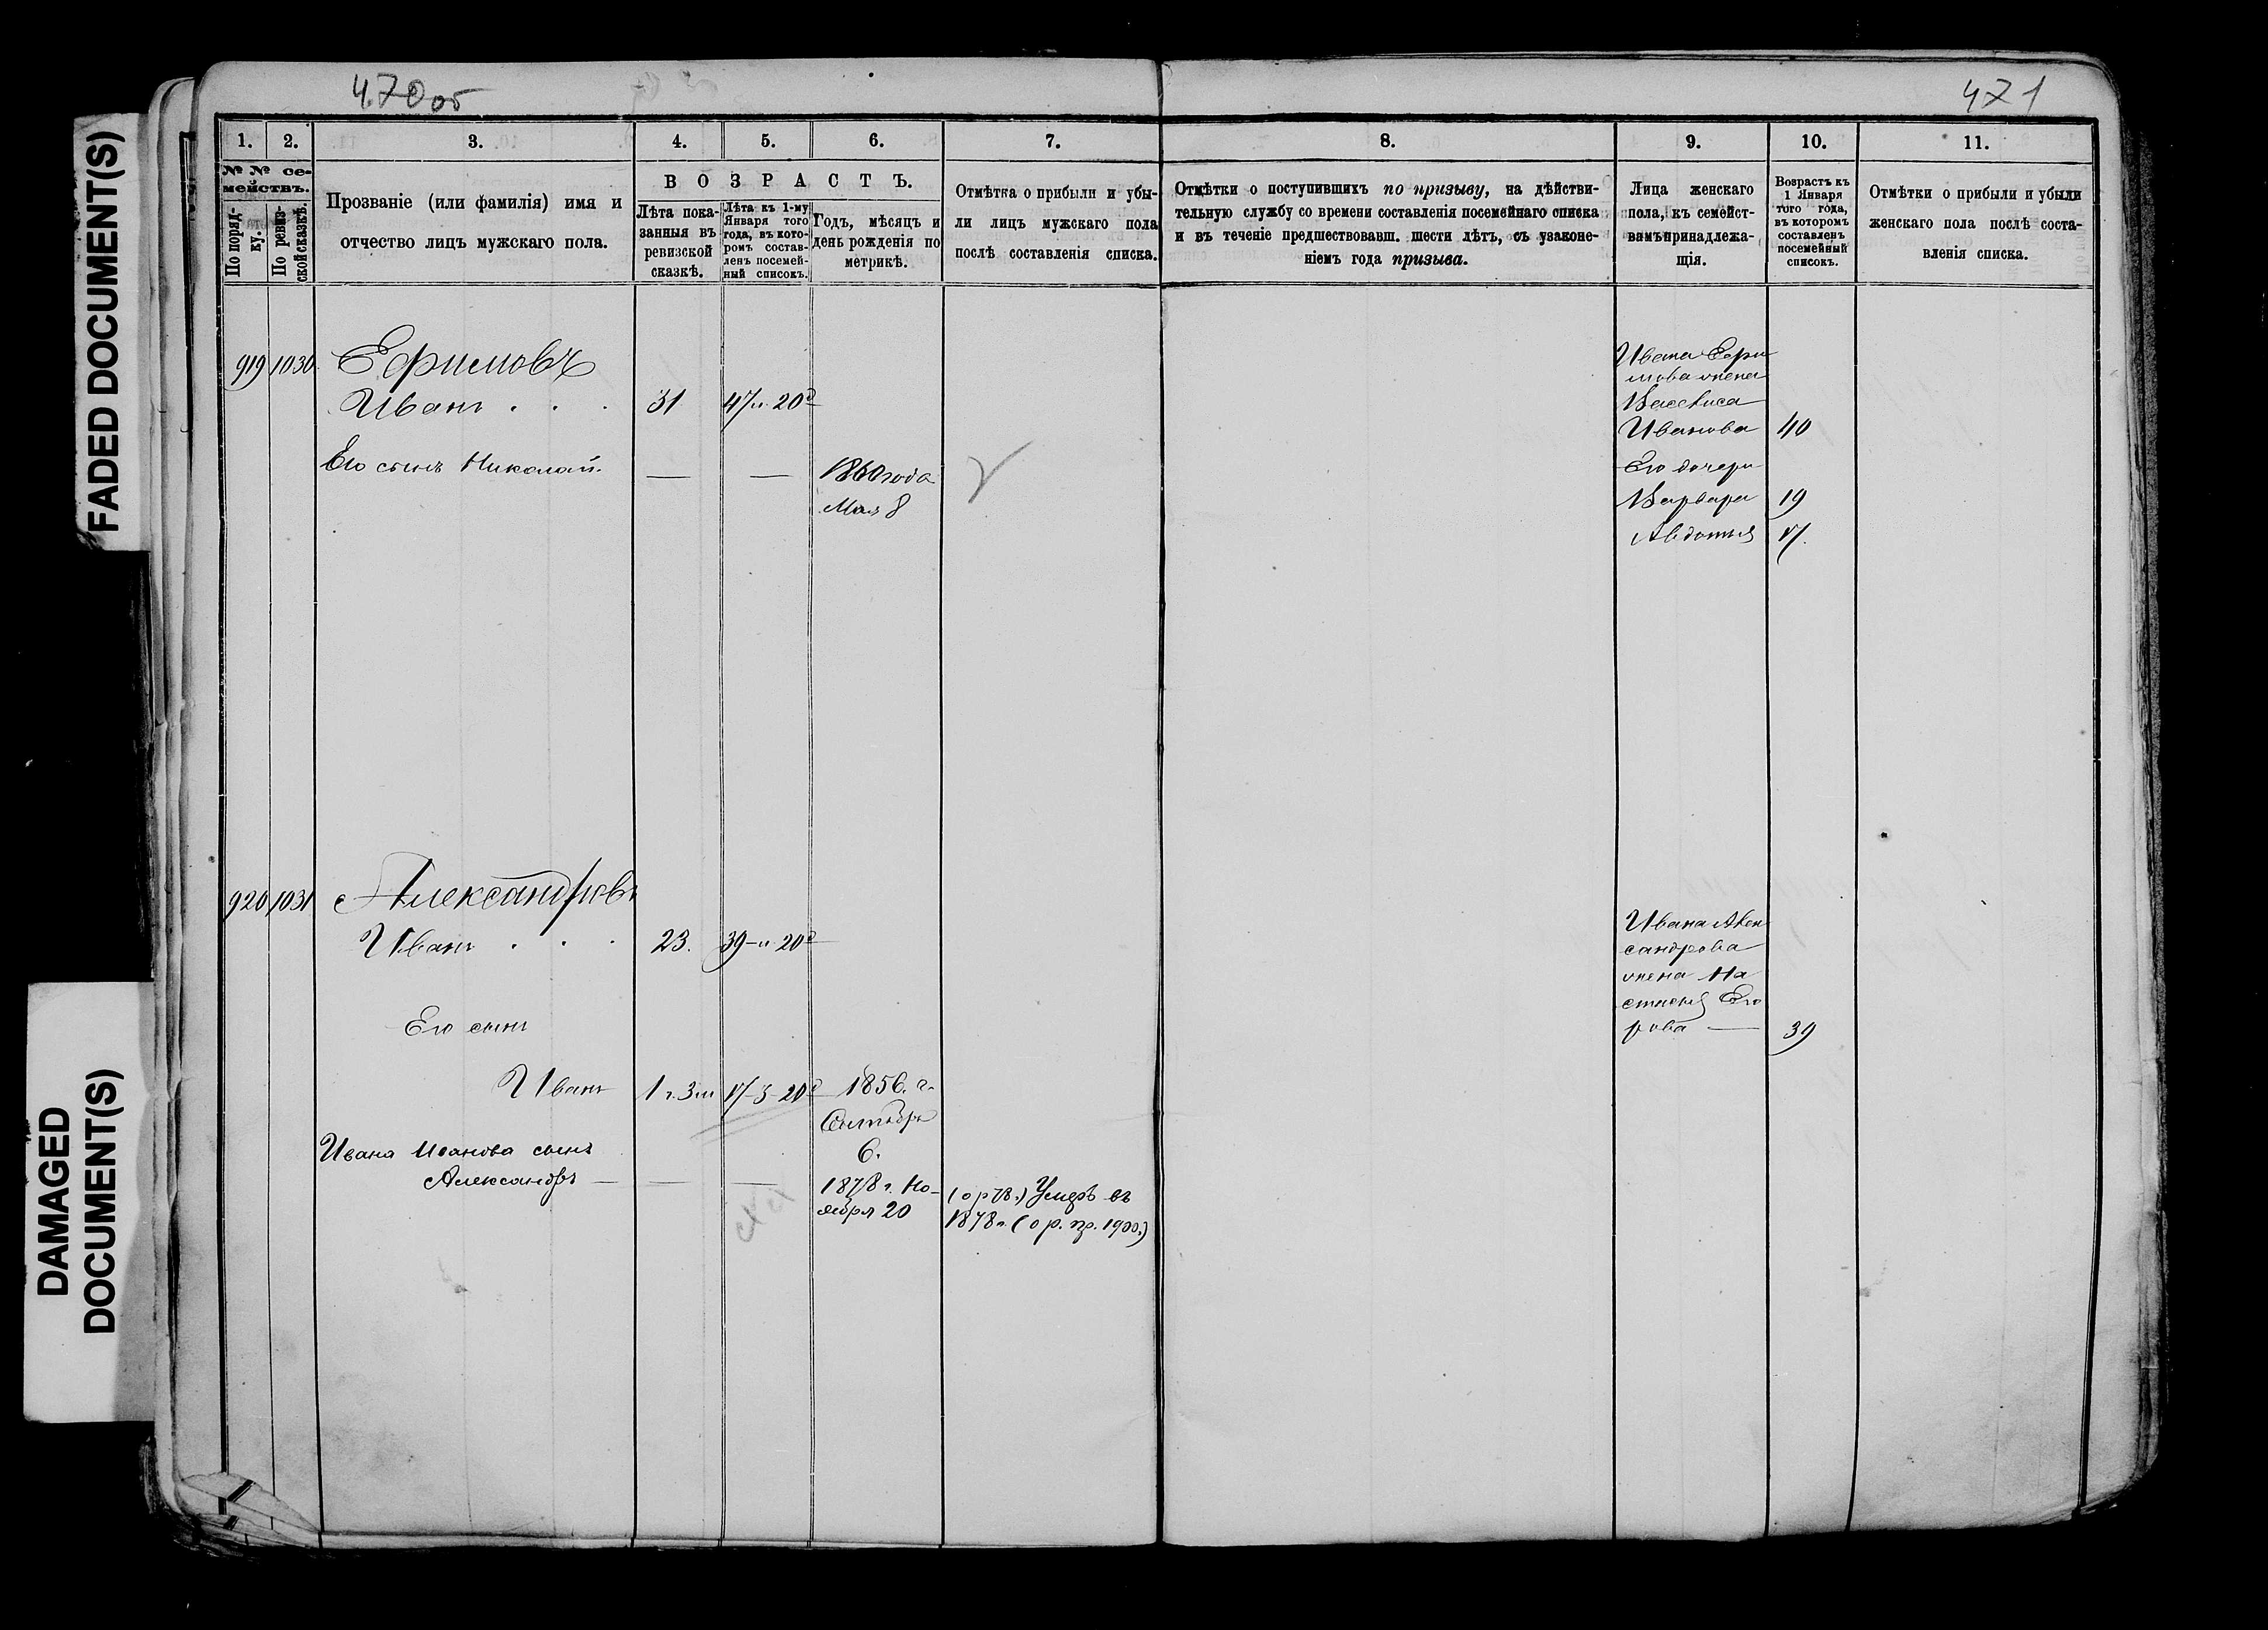 470 об
471
FADED DOCUMENT(S)
DAMAGED
DOCUMENT(S)
1. 2. 3. 4. 5. 6. 7. 8. 9. 10. 11.
№ № се-
мействъ.
По поряд-
ку.
По ревиз-
ской сказкѣ.
Прозваніе (или фамилія) имя и
отчество лицъ мужскаго пола.
ВОЗРАСТЪ.
Лѣта пока-
занныя въ
ревизской
сказкѣ.
Лѣта къ 1-му
Января того
года, въ кото-
ромъ состав-
ленъ посемей-
ный списокъ.
Годъ, мѣсяцъ и
день рожденія по
метрикѣ.
Отмѣтка о прибыли и убы-
ли лицъ мужскаго пола
послѣ составленія списка.
Отмѣтки о поступившихъ по призыву, на дѣйстви-
тельную службу со времени составленія посемейнаго списка
и въ теченіе предшествовавш. шести лѣтъ, съ узаконе-
ніемъ года призыва.
Лица женскаго
пола, къ семейст-
вамъ принадлежа-
щія.
Возрастъ къ
1 Января
того года,
въ которомъ
составленъ
посемейный
списокъ.
Отмѣтки о прибыли и убыли
женскаго пола послѣ соста-
вленія списка.
919 1030 Ефимовъ
Иванъ . . . 31 47 и 20д
Его сынъ Николай. — — 1860 года
Мая 8
Ивана Ефи
мова жена
Иванова 40
Его дочери
Варвара 19
Авдотья 17.
920 1031 Александровъ
Иванъ . . . 23. 39 – и 20д
Его сынъ
Иванъ 1 г. 3 м 17–3–20д 1856. г.
Сентября
6.
Ивана Иванова сынъ
Александръ — — — 1878 г. Но-
ября 20
Умеръ въ
1878 г. (о р. пр. 1900.)
Ивана Алек
сандрова
жена На
стасья Его
рова — 39